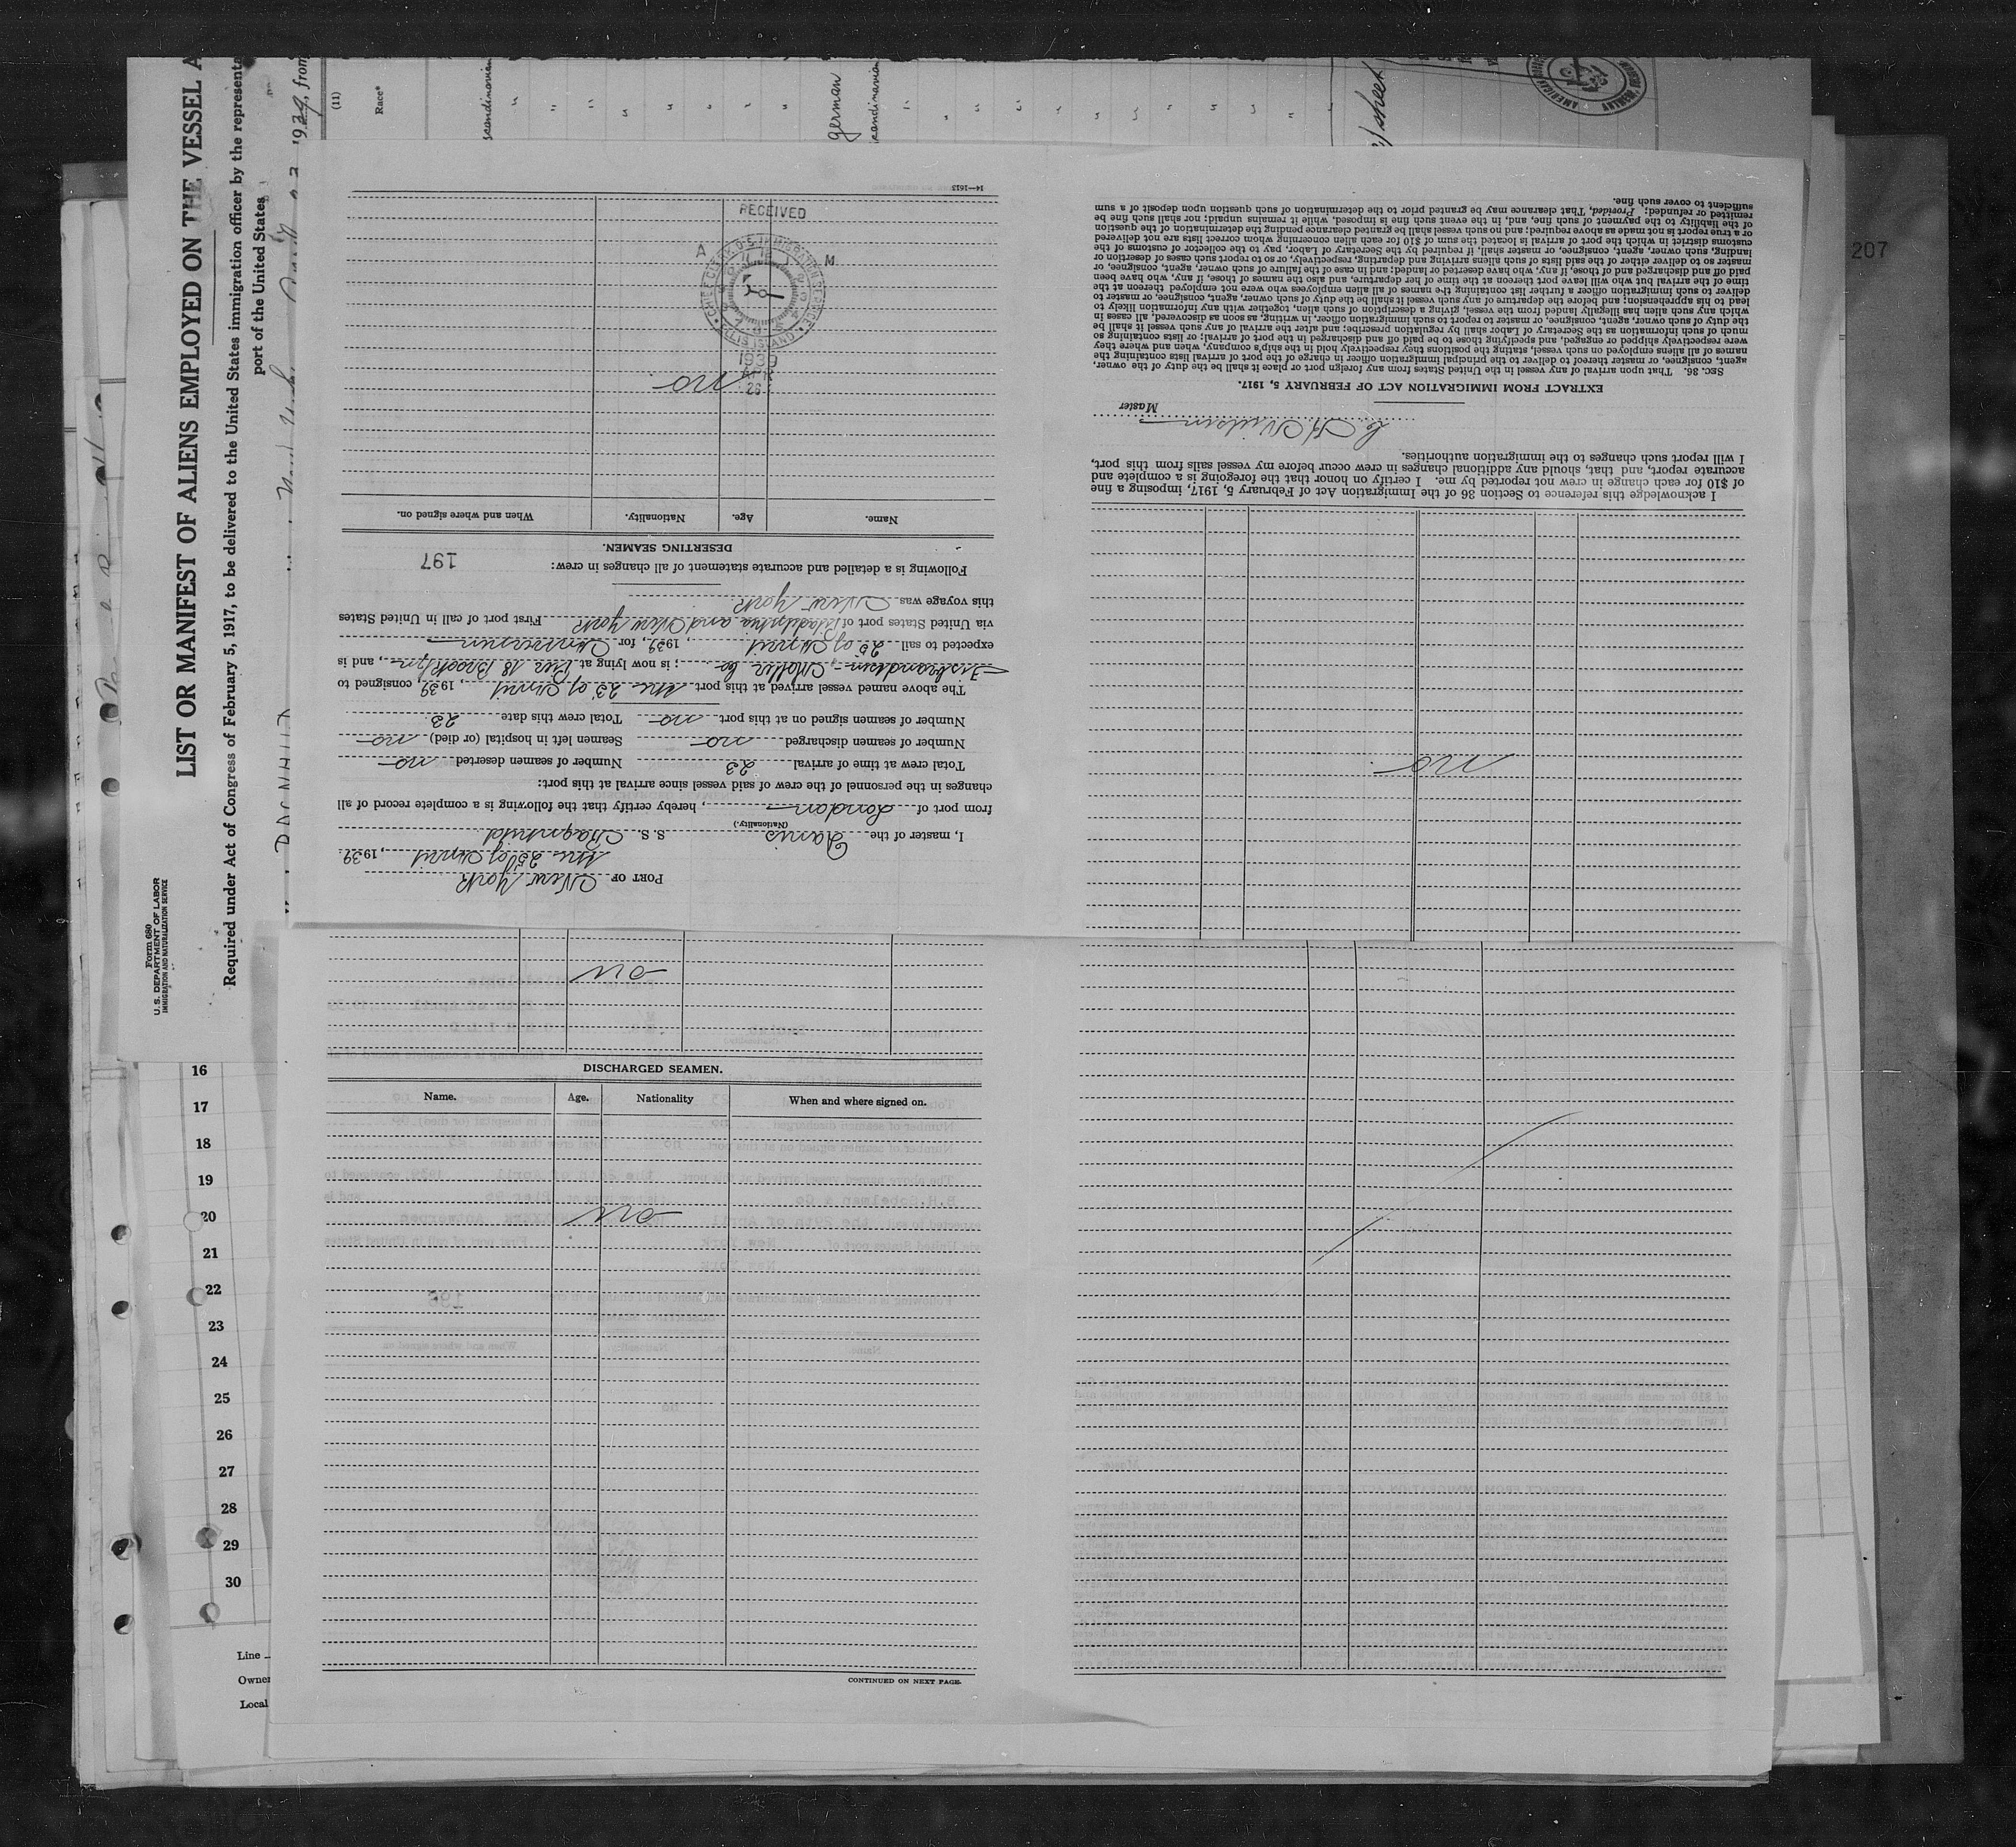 LIST OR MANIFEST OF ALIENS EMPLOYED ON THE VESSEL A
Required under Act of Congress of February 5, 1917, to be delivered to the United States immigration officer by the representa
port of the United States
Form 680
U. S. DEPARTMENT OF LABOR
IMMIGRATION AND NATURALIZATION SERVICE
, from
(11)
Race*
Scandinavian
"
"
"
"
"
"
"
"
german
Scandinavian
"
"
"
"
"
"
"
"
"
"
sheet
207
PORT OF New York
the 25 of April, 1939
I, master of the Danis S. S. Dagnhild
(Nationality.)
from port of London, hereby certify that the following is a complete record of all
changes in the personnel of the crew of said vessel since arrival at this port:
Total crew at time of arrival 23 Number of seamen deserted no
Number of seamen discharged no Seamen left in hospital (or died) no
Number of seamen signed on at this port no Total crew this date 23
The above named vessel arrived at this port the 23 of April, 1939, consigned to
Isbrandtsen - Moller Co; is now lying at Pier 18 Brooklyn, and is
expected to sail 25 of April, 1939, for
via United States port of Philadelphia and New York First port of call in United States
this voyage was New York
Following is a detailed and accurate statement of all changes in crew:
197
DESERTING SEAMEN.
Name. Age. Nationality. When and where signed on.
no
RECEIVED
A M
U.S. IMMIGRATION SERVICE
ELLIS ISLAND
1939
APR
26
14—1613
no
I acknowledge this reference to Section 36 of the Immigration Act of February 5, 1917, imposing a fine
of $10 for each change in crew not reported by me. I certify on honor that the foregoing is a complete and
accurate report, and that, should any additional changes in crew occur before my vessel sails from this port,
I will report such changes to the immigration authorities.
Master
EXTRACT FROM IMMIGRATION ACT OF FEBRUARY 5, 1917.
SEC. 36. That upon arrival of any vessel in the United States from any foreign port or place it shall be the duty of the owner,
agent, consignee, or master thereof to deliver to the principal immigration officer in charge of the port of arrival lists containing the
names of all aliens employed on such vessel, stating the positions they respectively hold in the ship's company, when and where they
were respectively shipped or engaged, and specifying those to be paid off and discharged in the port of arrival; or lists containing so
much of such information as the Secretary of Labor shall by regulation prescribe; and after the arrival of any such vessel it shall be
the duty of such owner, agent, consignee, or master to report to such immigration officer, in writing, as soon as discovered, all cases in
which any such alien has illegally landed from the vessel, giving a description of such alien, together with any information likely to
lead to his apprehension; and before the departure of any such vessel it shall be the duty of such owner, agent, consignee, or master to
deliver to such immigration officer a further list containing the names of all alien employees who were not employed thereon at the
time of the arrival but who will leave port thereon at the time of her departure, and also the names of those, if any, who have been
paid off and discharged and of those, if any, who have deserted or landed; and in case of the failure of such owner, agent, consignee, or
master so to deliver either of the said lists of such aliens arriving and departing, respectively, or so to report such cases of desertion or
landing, such owner, agent, consignee, or master shall, if required by the Secretary of Labor, pay to the collector of customs of the
customs district in which the port of arrival is located the sum of $10 for each alien concerning whom correct lists are not delivered
or a true report is not made as above required; and no such vessel shall be granted clearance pending the determination of the question
of the liability to the payment of such fine, and, in the event such fine is imposed, while it remains unpaid; nor shall such fine be
remitted or refunded; Provided, That clearance may be granted prior to the determination of such question upon deposit of a sum
sufficient to cover such fine.
no
DISCHARGED SEAMEN.
Name. Age. Nationality When and where signed on.
no
CONTINUED ON NEXT PAGE.
16
17
18
19
20
21
22
23
24
25
26
27
28
29
30
Line
Owner
Local